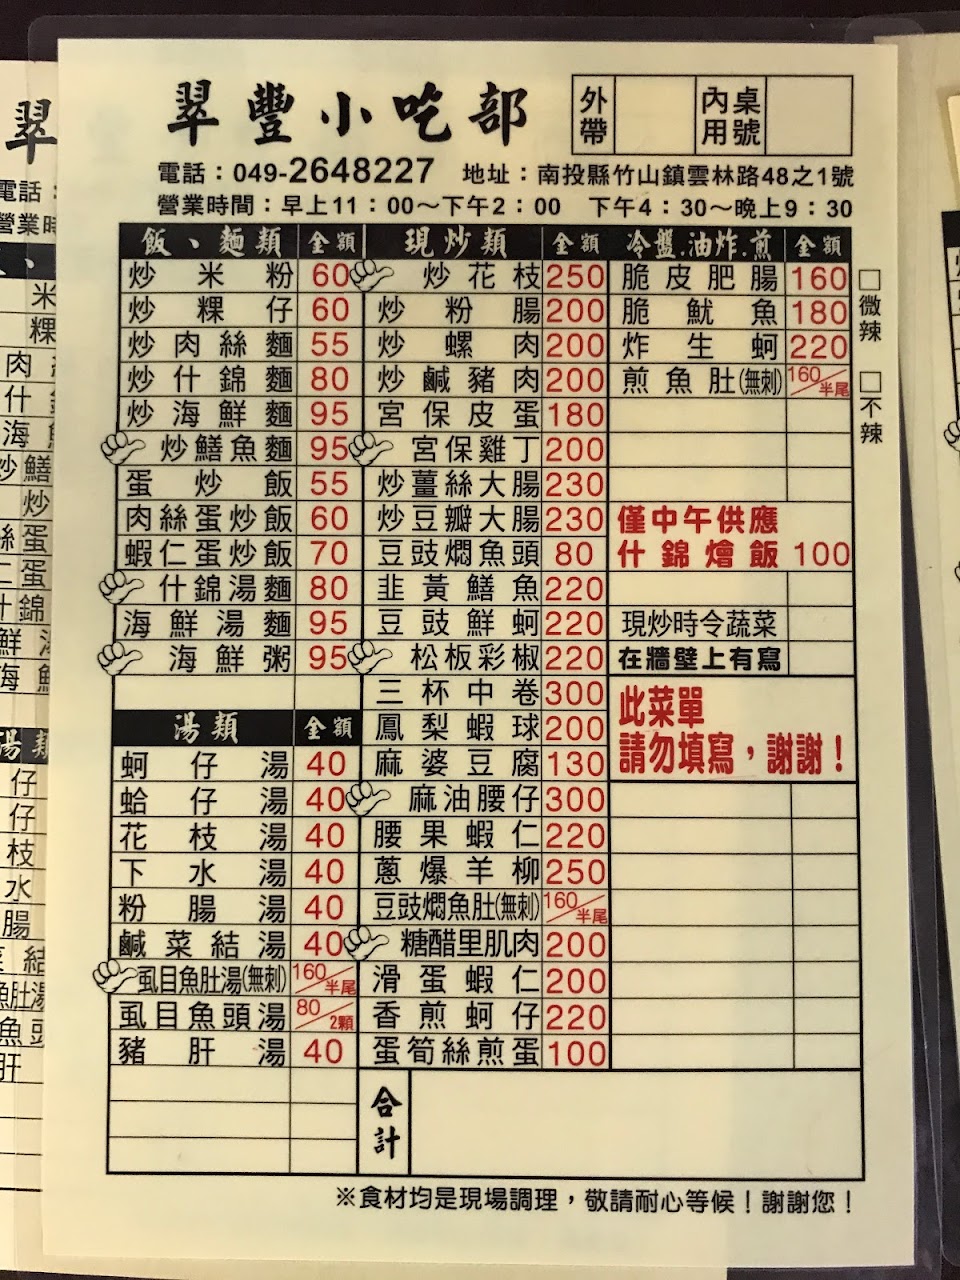 翠豐小吃部
外帶
內用 桌號
電話：049-2648227 地址：南投縣竹山鎮雲林路48之1號
營業時間：早上11：00～下午2：00 下午4：30～晚上9：30
飯、麵類 金額
炒米粉 60
炒粿仔 60
炒肉絲麵 55
炒什錦麵 80
炒海鮮麵 95
炒鱔魚麵 95
蛋炒飯 55
肉絲蛋炒飯 60
蝦仁蛋炒飯 70
什錦湯麵 80
海鮮湯麵 95
海鮮粥 95
湯類 金額
蚵仔湯 40
蛤仔湯 40
花枝湯 40
下水湯 40
粉腸湯 40
鹹菜結湯 40
虱目魚肚湯(無刺) 160/半尾
虱目魚頭湯 80/2顆
豬肝湯 40
現炒類 金額
炒花枝 250
炒粉腸 200
炒螺肉 200
炒鹹豬肉 200
宮保皮蛋 180
宮保雞丁 200
炒薑絲大腸 230
炒豆瓣大腸 230
豆豉燜魚頭 80
韭黃鱔魚 220
豆豉鮮蚵 220
松板彩椒 220
三杯中卷 300
鳳梨蝦球 200
麻婆豆腐 130
麻油腰仔 300
腰果蝦仁 220
蔥爆羊柳 250
豆豉燜魚肚(無刺) 160/半尾
糖醋里肌肉 200
滑蛋蝦仁 200
香煎蚵仔 220
蛋筍絲煎蛋 100
合計
冷盤.油炸.煎 金額
脆皮肥腸 160
脆魷魚 180
炸生蚵 220
煎魚肚(無刺) 160/半尾
□微辣
□不辣
僅中午供應
什錦燴飯 100
現炒時令蔬菜
在牆壁上有寫
此菜單
請勿填寫，謝謝！
※食材均是現場調理，敬請耐心等候！謝謝您！